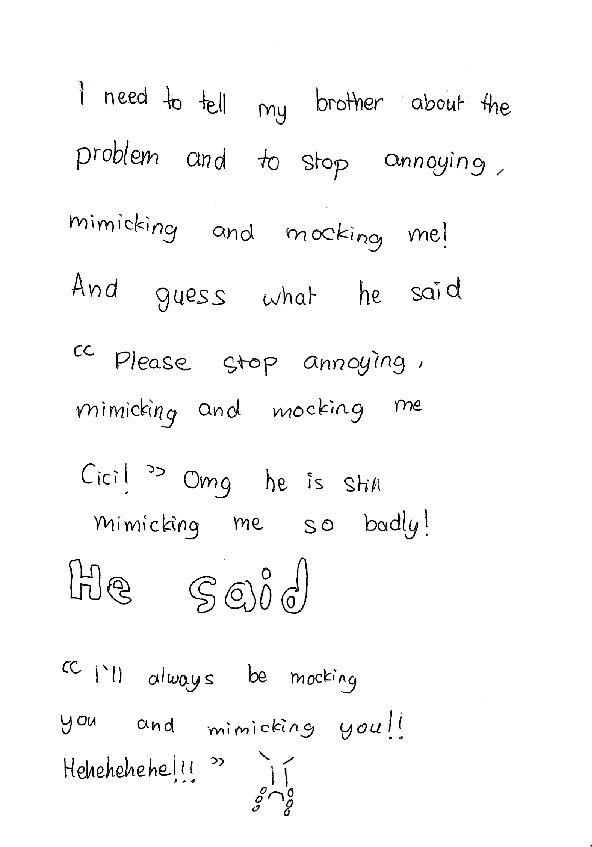 I need to tell my brother about the
problem and to stop annoying,
mimicking and mocking me!
And guess what he said
“ Please stop annoying,
mimicking and mocking me
Cici! ” Omg he is still
mimicking me so badly!
He said
“ I'll always be mocking
you and mimicking you!!
Hehehehehe!!! ”